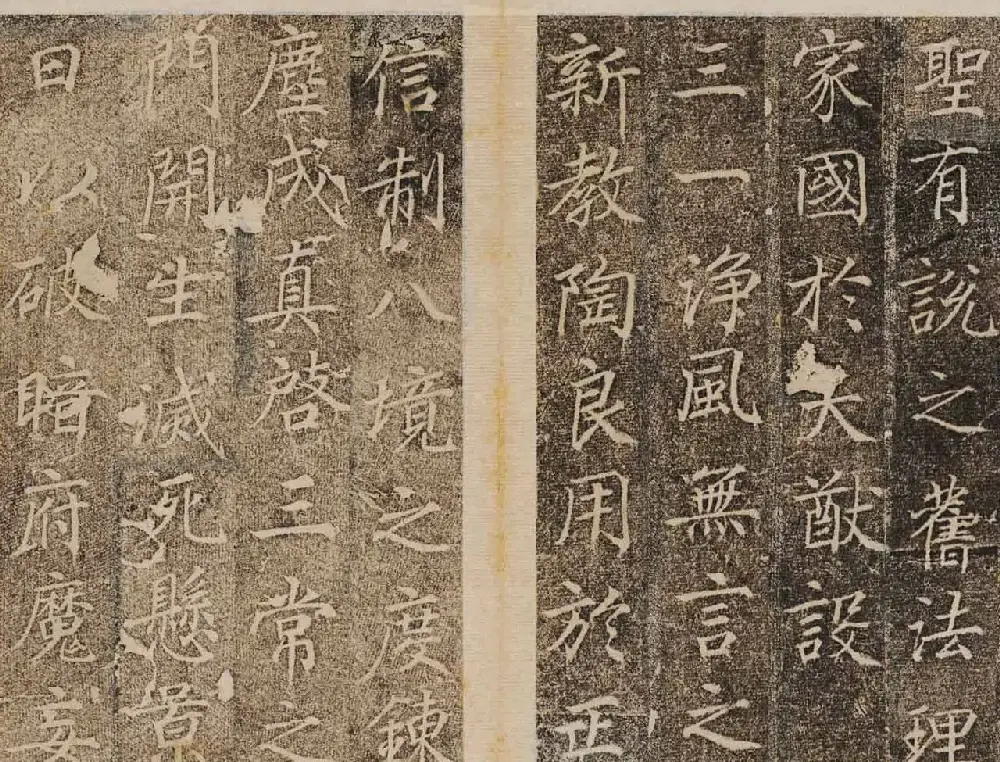 聖有說之舊法理
家國於大猷設
三一淨風無言之
新教陶良用於正
信制八境之度鍊
塵成真啓三常之
門開生滅死懸景
日以破暗府魔妄